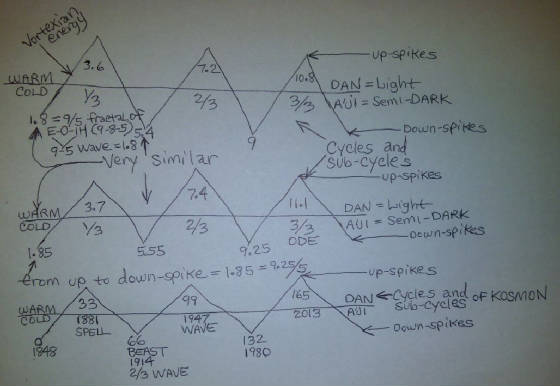 Vortexian
energy
3.6
7.2
10.8
up-spikes
WARM
COLD
1/3
2/3
3/3
DAN = Light
A'JI = Semi-DARK
1.8 = 9/5 fractal of
E-O-IH (9-8-5)
9-5 wave = 1.8
5.4
9
Down-spikes
Cycles and
sub-cycles
Very similar
up-spikes
3.7
7.4
11.1
WARM
COLD
1/3
2/3
3/3
ODE
DAN = Light
AJI = Semi-DARK
Down-spikes
1.85
5.55
9.25
from up to down-spike = 1.85 = 9.25/5
up-spikes
33
99
165
WARM
COLD
1881
SPELL
1947
WAVE
2013
DAN
AJI
Cycles and
sub-cycles
of KOSMON
Down-spikes
0
1848
66
BEAST
1914
2/3 WAVE
132
1980